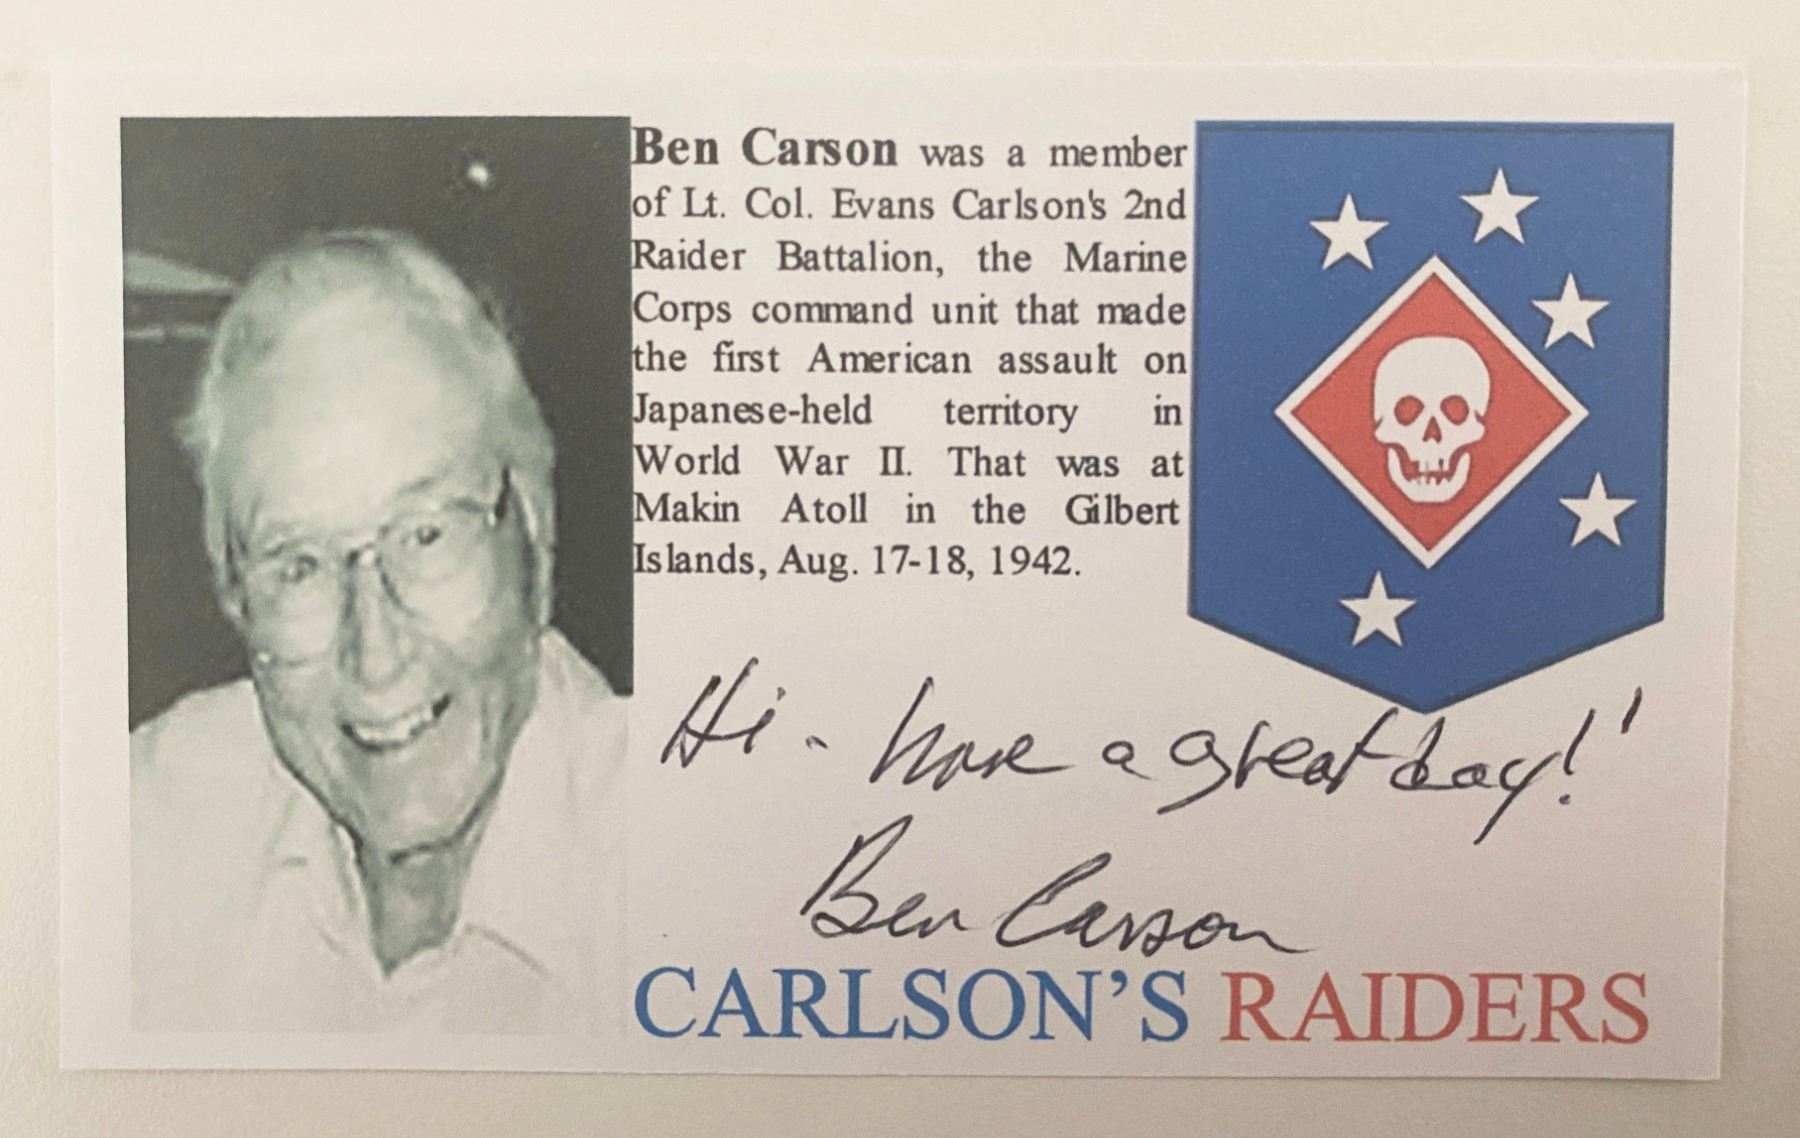 Ben Carson was a member
of Lt. Col. Evans Carlson's 2nd
Raider Battalion, the Marine
Corps command unit that made
the first American assault on
Japanese-held territory in
World War II. That was at
Makin Atoll in the Gilbert
Islands, Aug. 17-18, 1942.
Hi - have a great day!'
Ben Carson
CARLSON'S RAIDERS